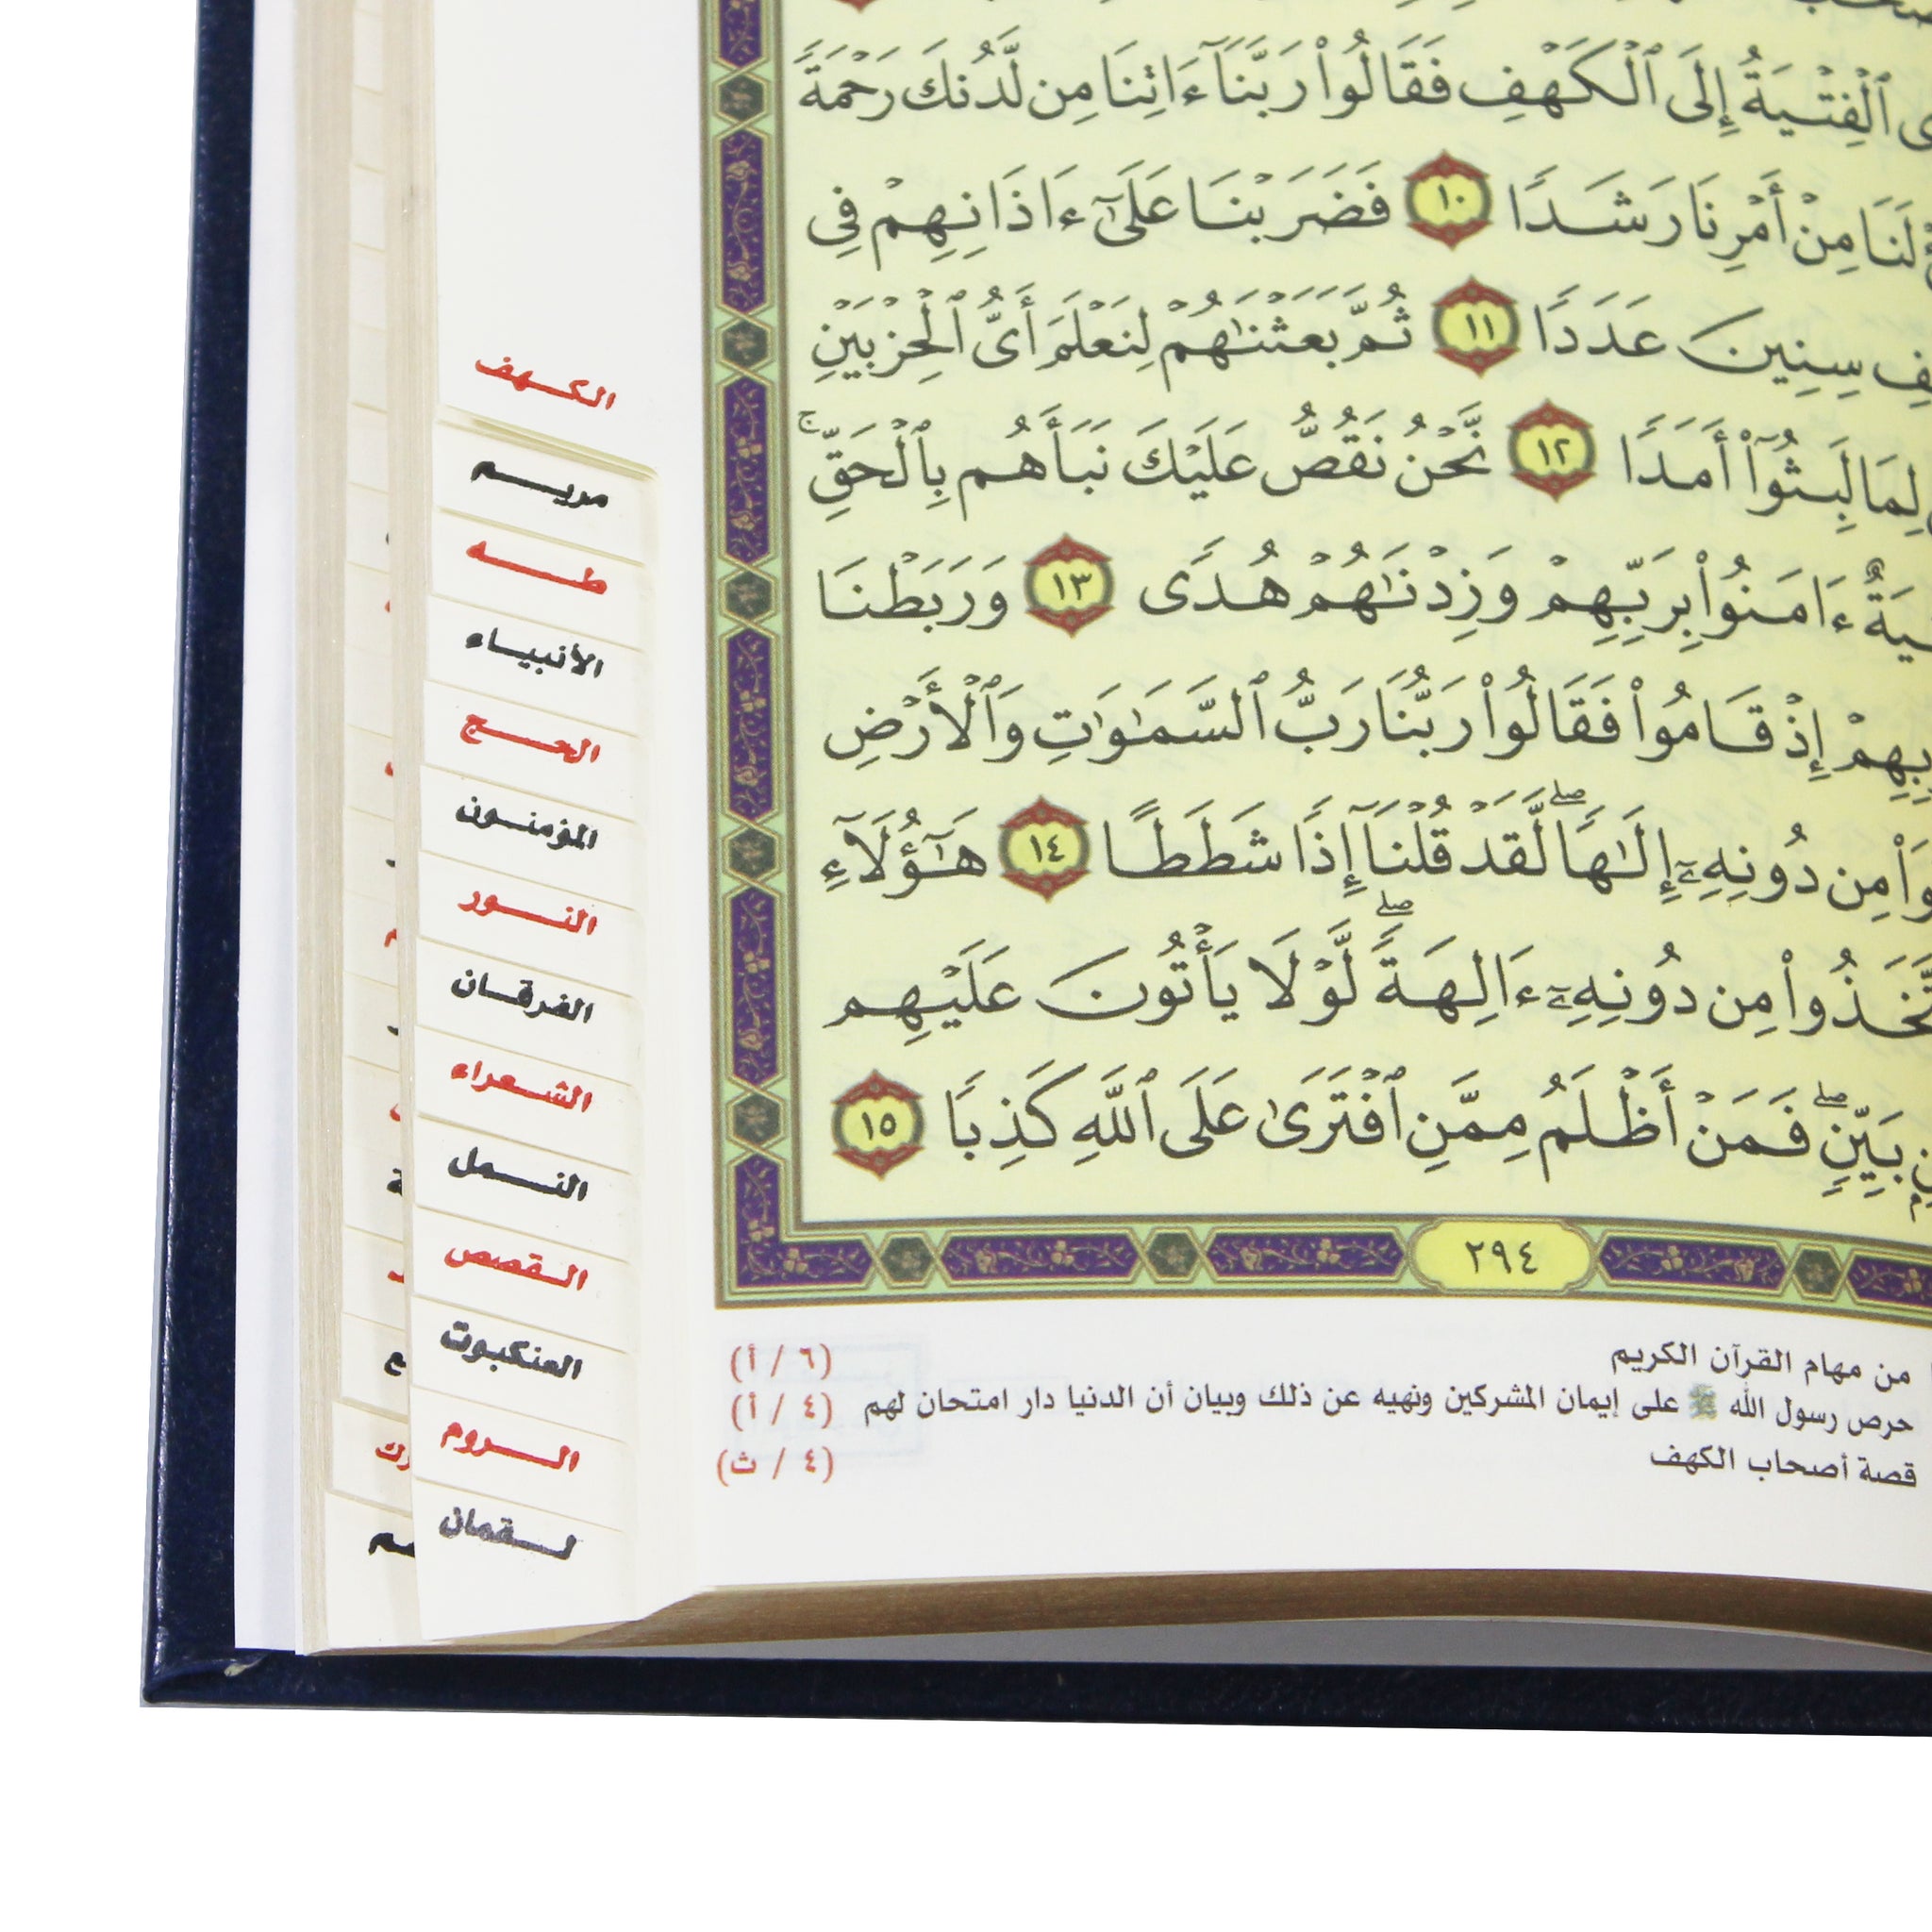 ٱلْفِتْيَةُ إِلَى ٱلْكَهْفِ فَقَالُوا۟ رَبَّنَآ ءَاتِنَا مِن لَّدُنكَ رَحْمَةً
لَنَا مِنْ أَمْرِنَا رَشَدًا ١٠ فَضَرَبْنَا عَلَىٰٓ ءَاذَانِهِمْ فِى
سِنِينَ عَدَدًا ١١ ثُمَّ بَعَثْنَٰهُمْ لِنَعْلَمَ أَىُّ ٱلْحِزْبَيْنِ
لِمَا لَبِثُوٓا۟ أَمَدًا ١٢ نَّحْنُ نَقُصُّ عَلَيْكَ نَبَأَهُم بِٱلْحَقِّ ۚ
ءَامَنُوا۟ بِرَبِّهِمْ وَزِدْنَٰهُمْ هُدًى ١٣ وَرَبَطْنَا
إِذْ قَامُوا۟ فَقَالُوا۟ رَبُّنَا رَبُّ ٱلسَّمَٰوَٰتِ وَٱلْأَرْضِ
مِن دُونِهِۦٓ إِلَٰهًا ۖ لَّقَدْ قُلْنَآ إِذًا شَطَطًا ١٤ هَٰٓؤُلَآءِ
مِن دُونِهِۦٓ ءَالِهَةً ۖ لَّوْلَا يَأْتُونَ عَلَيْهِم
بَيِّنٍ ۖ فَمَنْ أَظْلَمُ مِمَّنِ ٱفْتَرَىٰ عَلَى ٱللَّهِ كَذِبًا ١٥
٢٩٤
من مهام القرآن الكريم (٦ / أ)
حرص رسول الله ﷺ على إيمان المشركين ونهيه عن ذلك وبيان أن الدنيا دار امتحان لهم (٤ / أ)
قصة أصحاب الكهف (٤ / ث)
الكهف
مريم
طه
الأنبياء
الحج
المؤمنون
النور
الفرقان
الشعراء
النمل
القصص
العنكبوت
الروم
لقمان